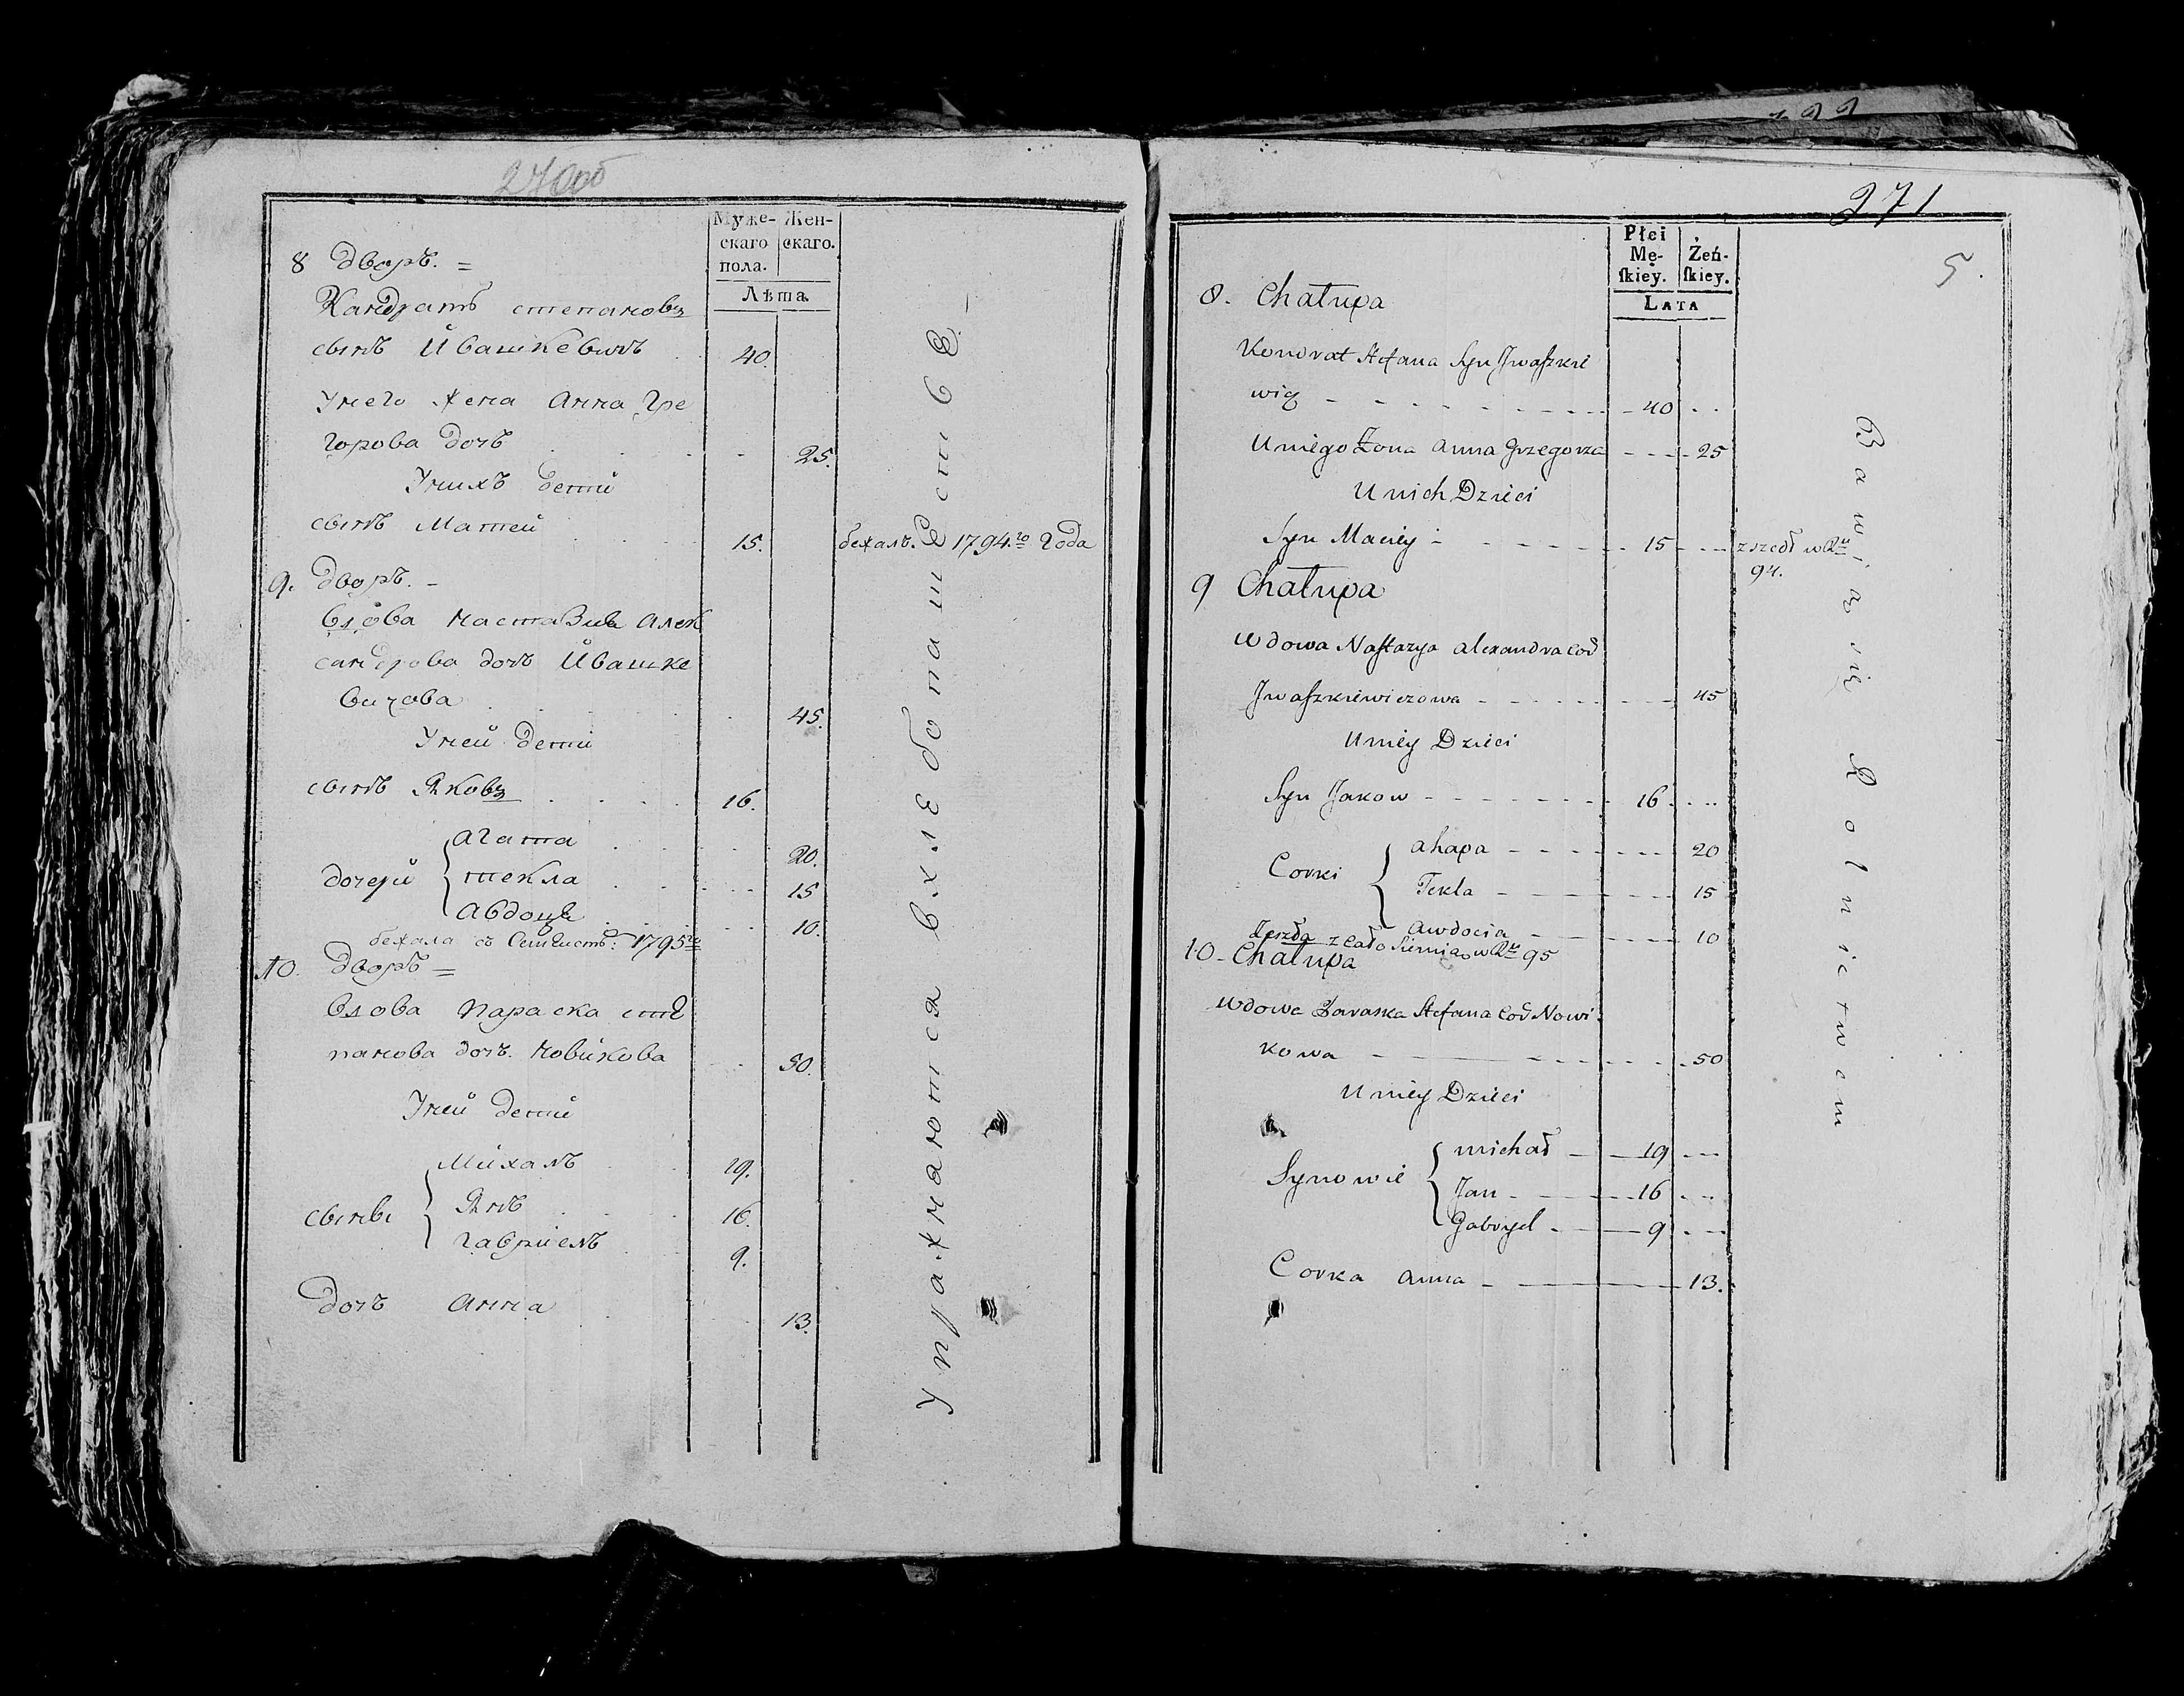 270об
Муже-
скаго
пола.
Жен-
скаго.
Лѣта
8 дворъ. =
Кандратъ степановъ
сынъ Ивашкевичъ 40.
Унего жена Анна Гре
горова дочь 25.
Унихъ дети
сынъ Матей 15. бежалъ. 1794.го Года
9. дворъ. -
Вдова Настазия Алек
сандрова дочь Ивашке
вичова 45.
Уней дети
сынъ Яковъ 16.
дочери
Агата 20.
текла 15
Авдоця 10.
бежала съ 1795го
10. дворъ =
Вдова Параска сте
панова дочь. Новикова 50.
Уней дети
сыны
Михалъ 19.
Янъ 16.
Гавриелъ 9.
дочь Анна 13.
Упражнаются вхлебопашестве. -
271
5.
Płci
Mę-
ſkiey.
Żeń-
ſkiey.
LATA
8. Chałupa
Kondrat Stefana Syn Jwaſzkie
wicz 40
Uniego Żona Anna Grzegorza 25
Unich Dzieci
Syn Maciey 15 zszedł w Ru
94.
9 Chałupa
Wdowa Naſtazya Alexandra Cod
Jwaſzkiewiczowa 45
Uniey Dzieci
Syn Jakow 16
Corki
Ahapa 20
Tekla 15
Awdocia 10
Zeszła z Cało w Ru 95
10 - Chałupa
Wdowa Paraska Stefana Cod Nowi
kowa 50
Uniey Dzieci
Synowie
Michał 19
Jan 16
Gabryel 9
Corka Anna 13.
Bawią się Rolnictwem